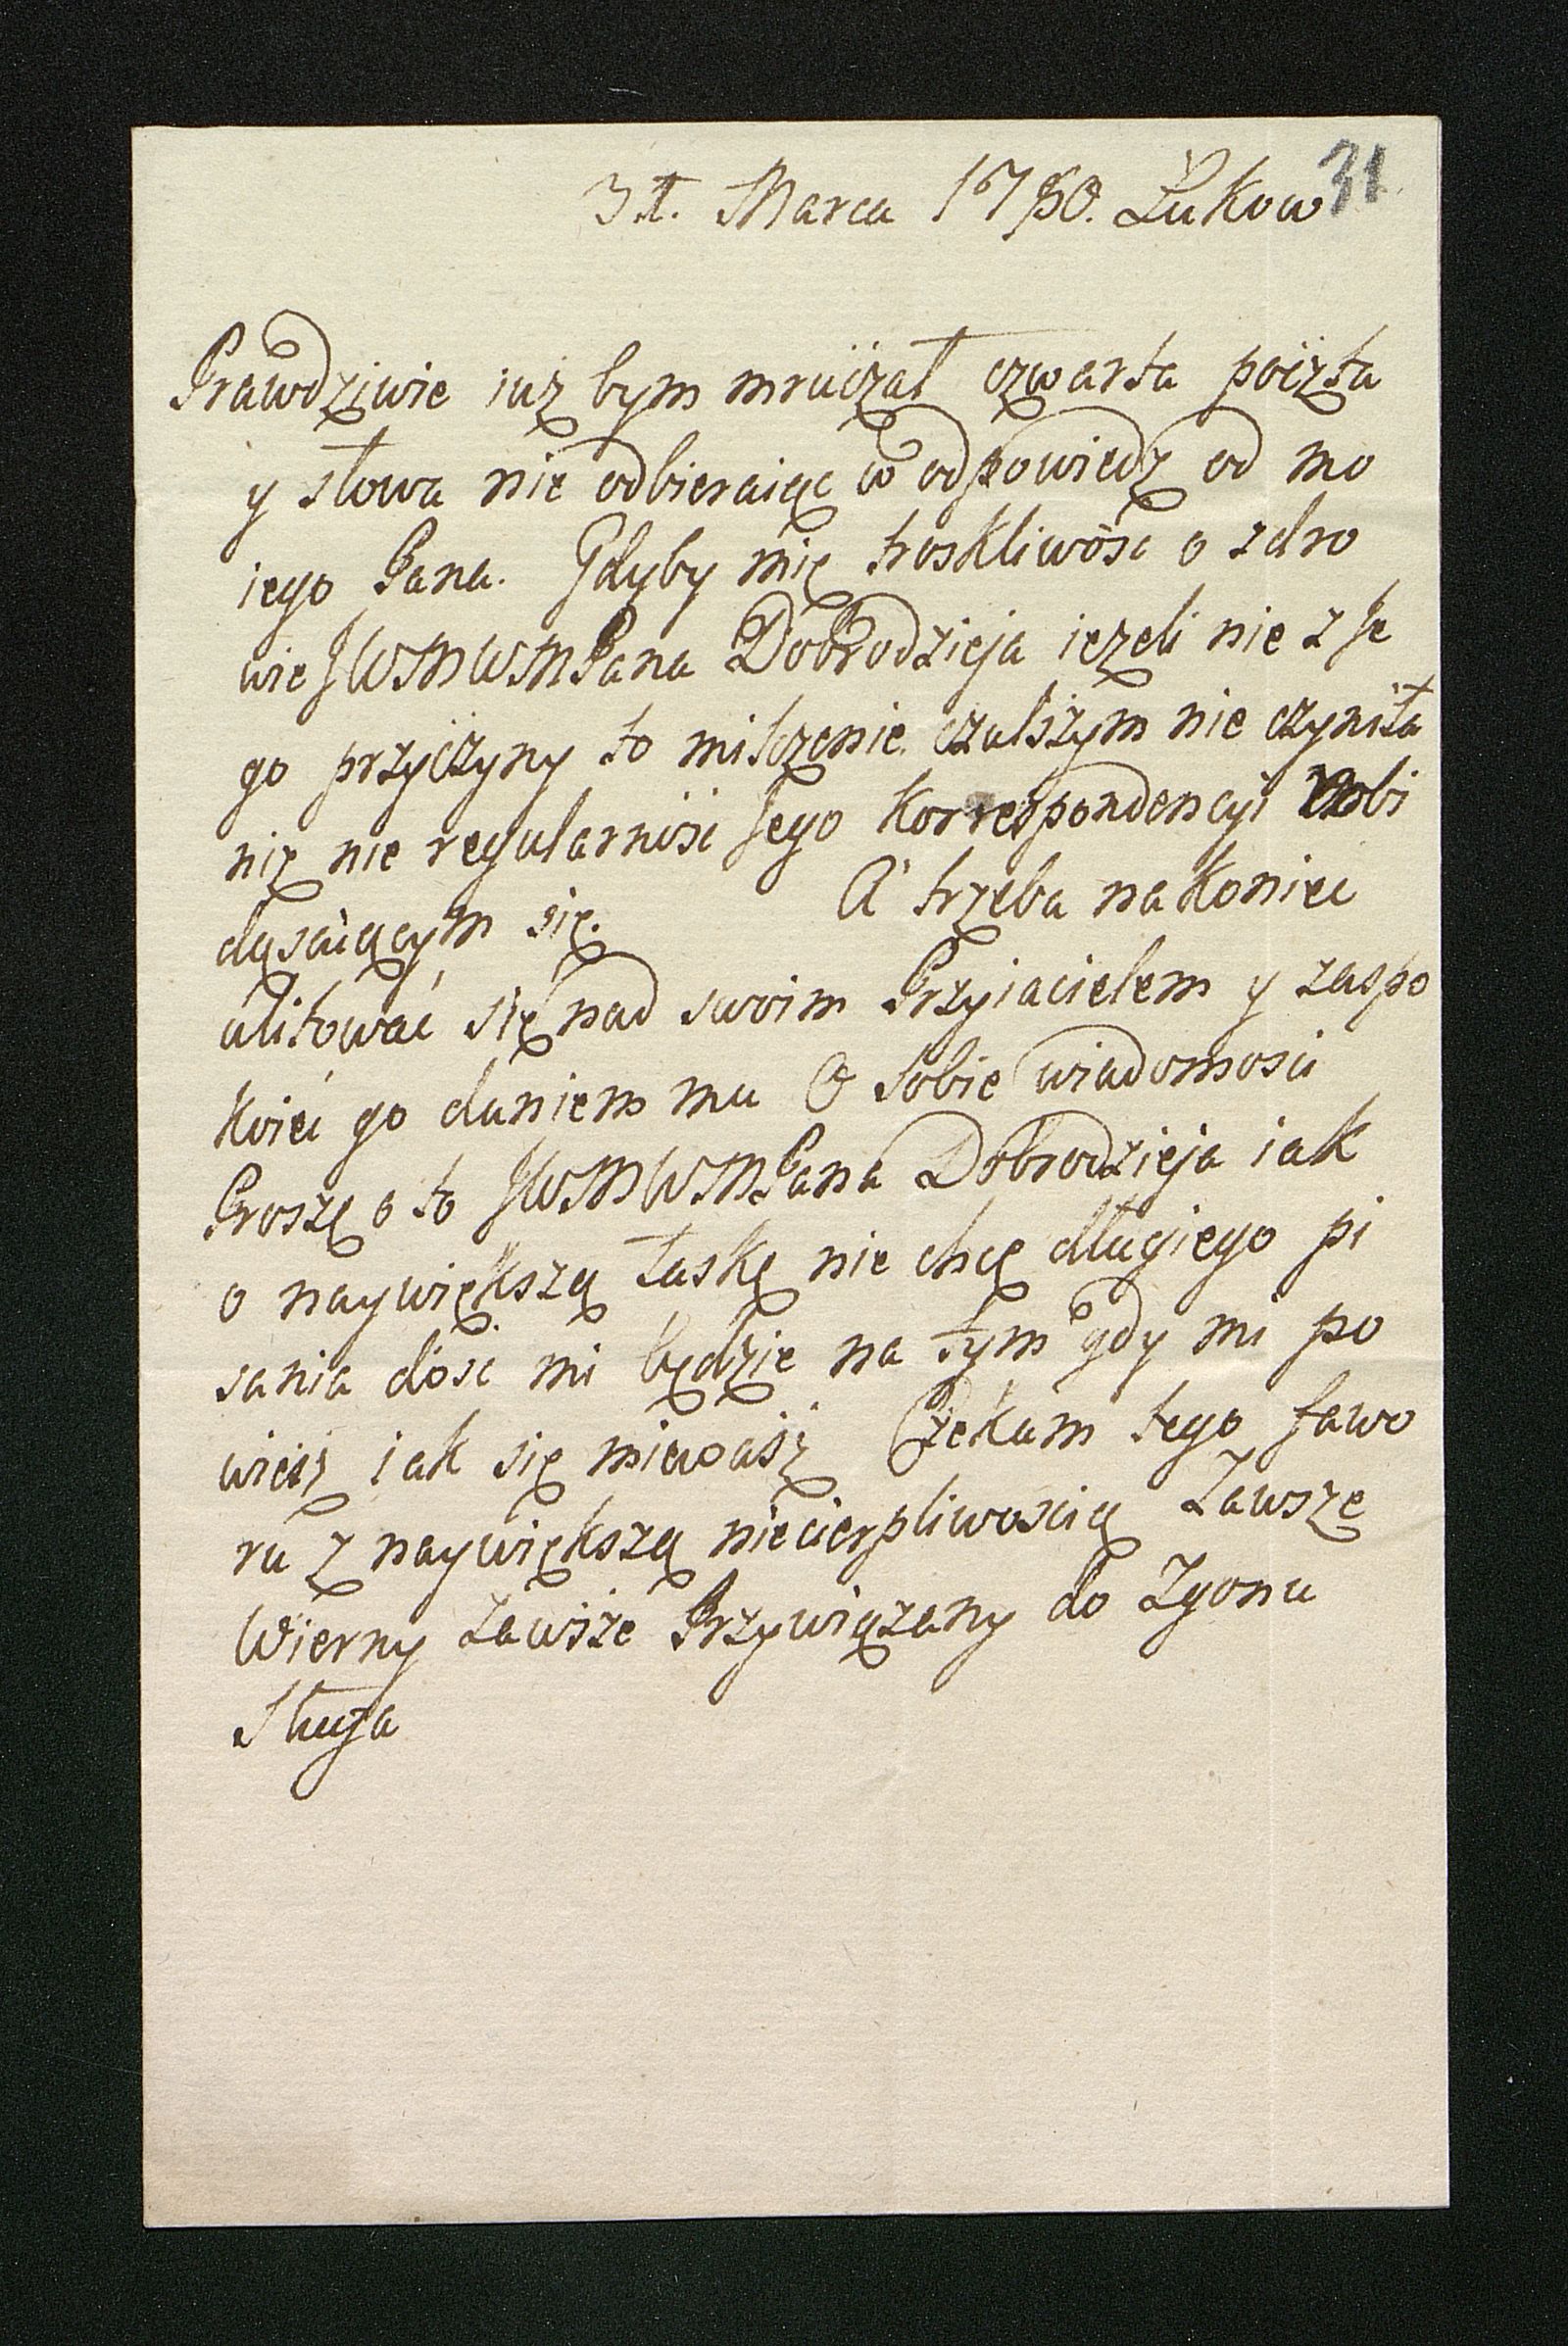 31
31. Marca 1780. Łukow
Prawdziwie iuz bym mruczał czwarta poczta
y słowa nie odbieraiąc w odpowiedz od mo
iego Pana. Gdyby mię troskliwosc o zdro
wie JWMWMPana Dobrodzieja iezeli nie z Je
go przyczyny to milczenie czulszym nie czyniła
niz nie regularnosc Jego Korrespondencyi
dąsaiącym się. A trzeba nakoniec
ulitować się nad swoim Przyiacielem y zaspo
koić go daniem mu O Sobie wiadomosci
Proszę o to JWMWMPana Dobrodzieja iak
o naywiększą łaskę nie chcę długiego pi
sania dosc mi będzie na tym gdy mi po
wiesz iak się miewasz Czekam tego fawo
ru z naywiększą niecierpliwoscią Zawsze
Wierny Zawsze Przywiązany do Zgonu
Sługa